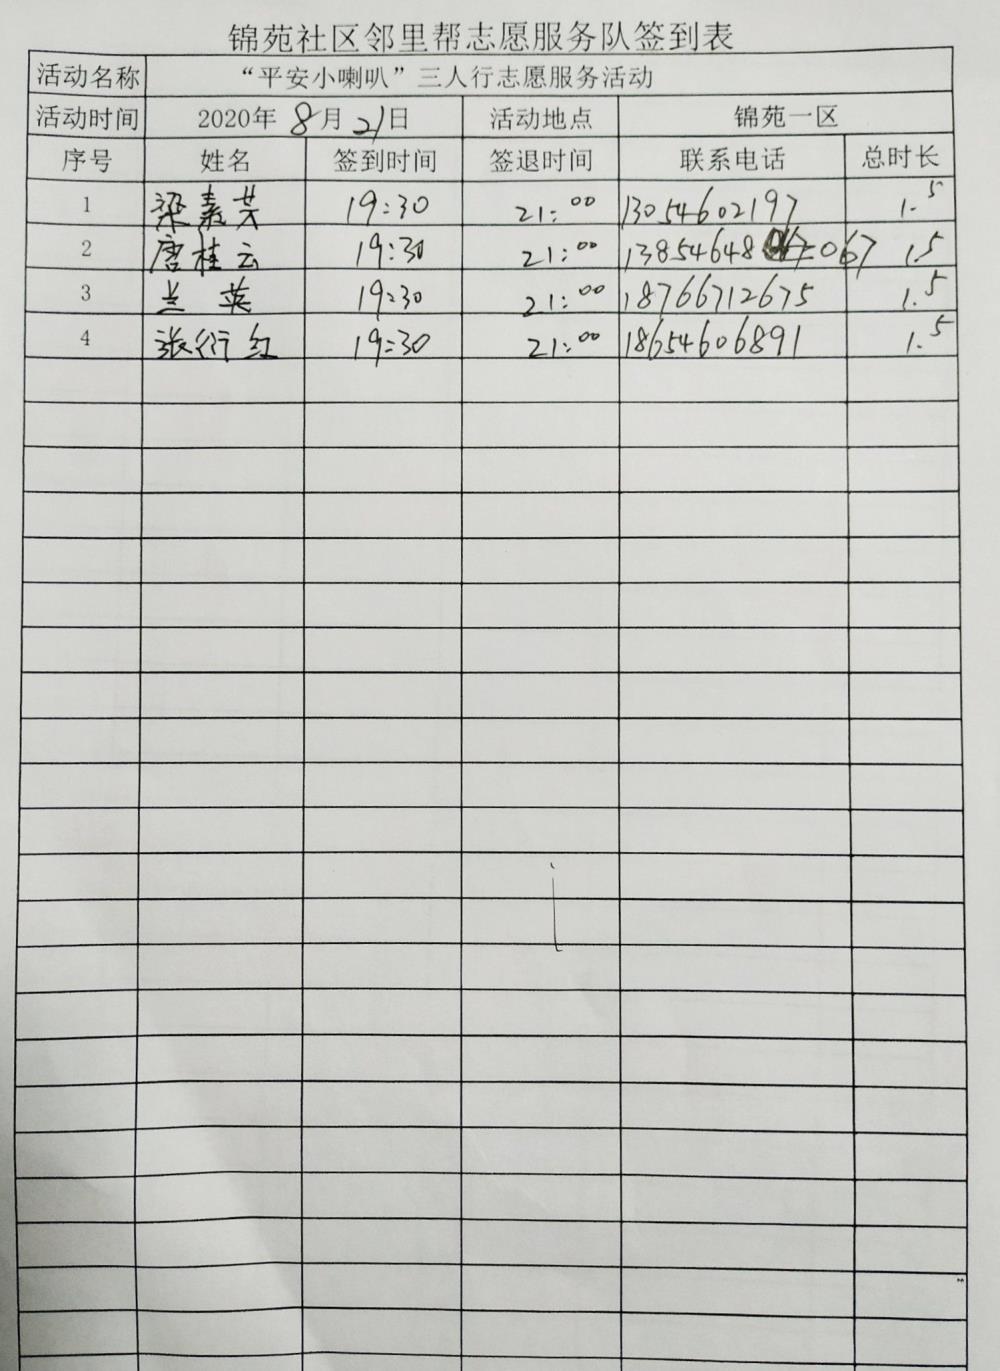 锦苑社区邻里帮志愿服务队签到表
活动名称 “平安小喇叭”三人行志愿服务活动
活动时间 2020年8月21日 活动地点 锦苑一区
序号 姓名 签到时间 签退时间 联系电话 总时长
1 梁素芳 19:30 21:00 13054602197 1.5
2 唐桂云 19:30 21:00 13854648067 1.5
3 兰英 19:30 21:00 18766712675 1.5
4 张衍红 19:30 21:00 18654606891 1.5